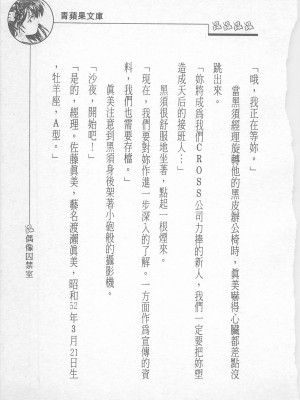 青蘋果文庫
「哦，我正在等妳。」
當黑須經理旋轉他的黑皮辦公椅時，真美嚇得心臟都差點沒
跳出來。
「妳將成為我們CROSS公司力捧的新人，我們一定要把妳塑
造成天后的接班人…」
黑須很舒服地坐著，點起一根煙來。
「現在，我們要對妳作進一步深入的了解。一方面作為宣傳的資
料，我們也需要存檔。」
真美注意到黑須身後架著小砲般的攝影機。
「沙夜，開始吧！」
「是的，經理。佐藤真美，藝名渡瀨真美，昭和52年3月21日生
，牡羊座，A型。」
偶像囚禁室